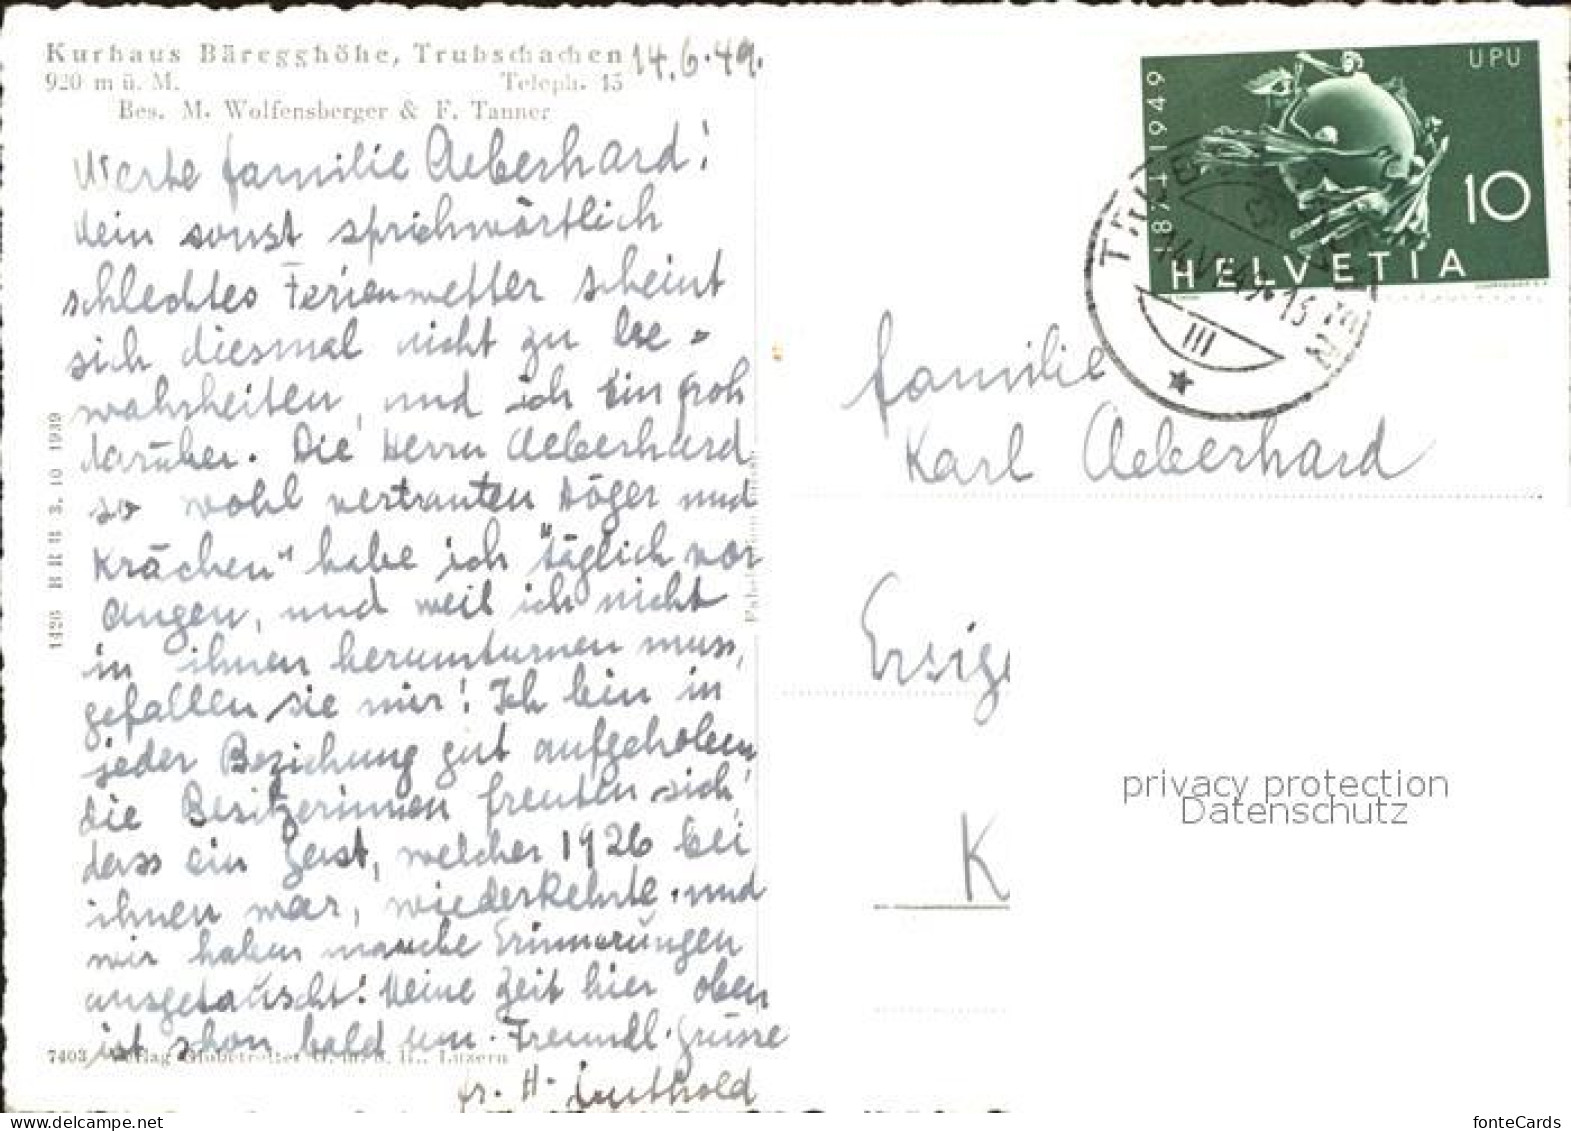 Kurhaus Bäregghöhe, Trubschachen 14.6.49.
920 m ü. M. Teleph. 15
Bes. M. Wolfensberger & F. Tanner
Werte Familie Aeberhard!
Mein sonst sprichwörtlich
schlechtes Ferienwetter scheint
sich diesmal nicht zu be-
wahrheiten, und ich bin froh
darüber. Die Herrn Aeberhard
so wohl vertrauten Höger und
Krächen" habe ich täglich vor
Augen, und weil ich nicht
in ihnen herumturnen muss,
gefallen sie mir! Ich bin in
jeder Beziehung gut aufgehoben,
die Besitzerinnen freuten sich,
dass ein Gast, welcher 1926 bei
ihnen war, wiederkehrte, und
wir haben manche Erinnerungen
ausgetauscht! Meine Zeit hier oben
ist schon bald um. Freundl. Grüsse
Fr. H. Luthold
7403 Verlag Globetrotter G.m.b.H., Luzern
1426 BRB 3. 10 1939
UPU
1874-1949
10
HELVETIA
14.VI.49-13
III
Familie
Karl Aeberhard
Ersige
K
privacy protection
Datenschutz
fonteCards